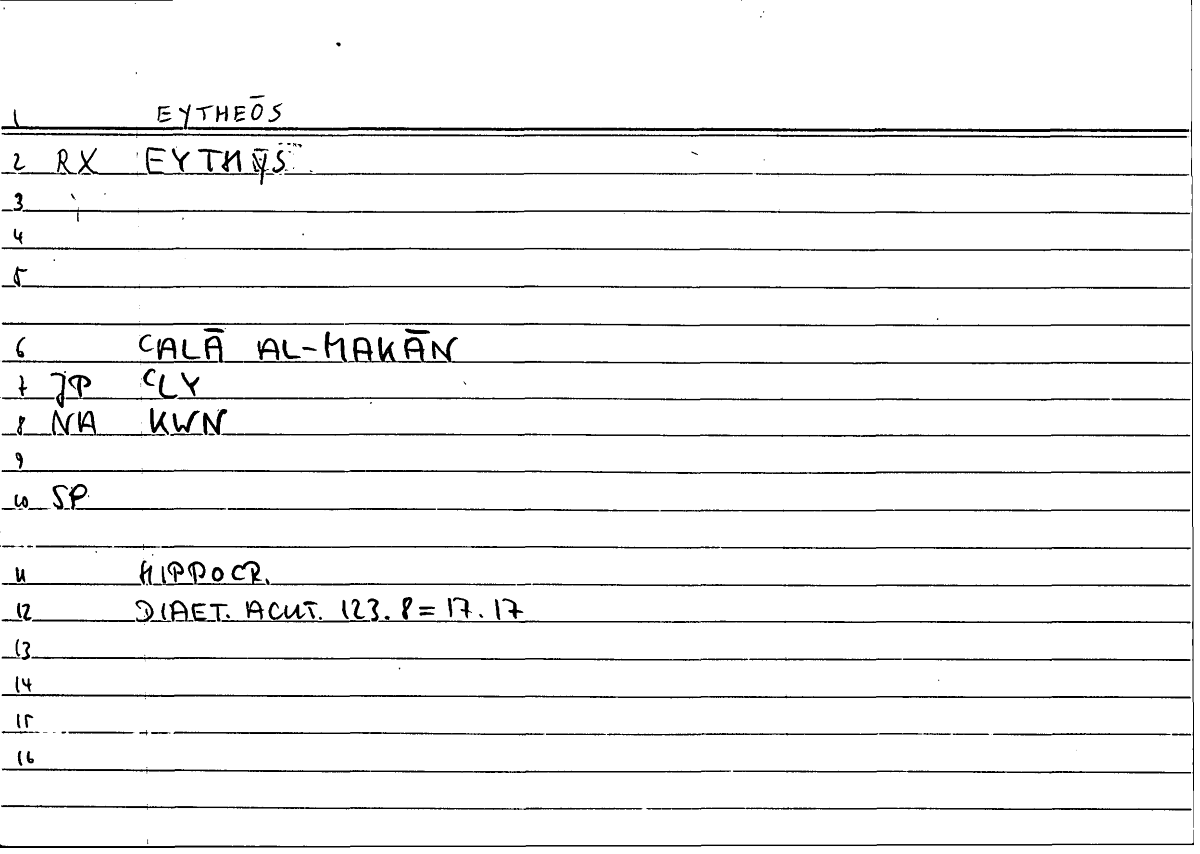 1 EYTHEŌS
2 RX EYTHYS
3
4
5
6 ʿALĀ AL-MAKĀN
7 JP ʿLY
8 NA KWN
9
10 SP
11 HIPPOCR.
12 DIAET. ACUT. 123.8 = 17.17
13
14
15
16